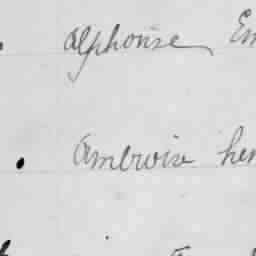 alphonse Em
ambroise her